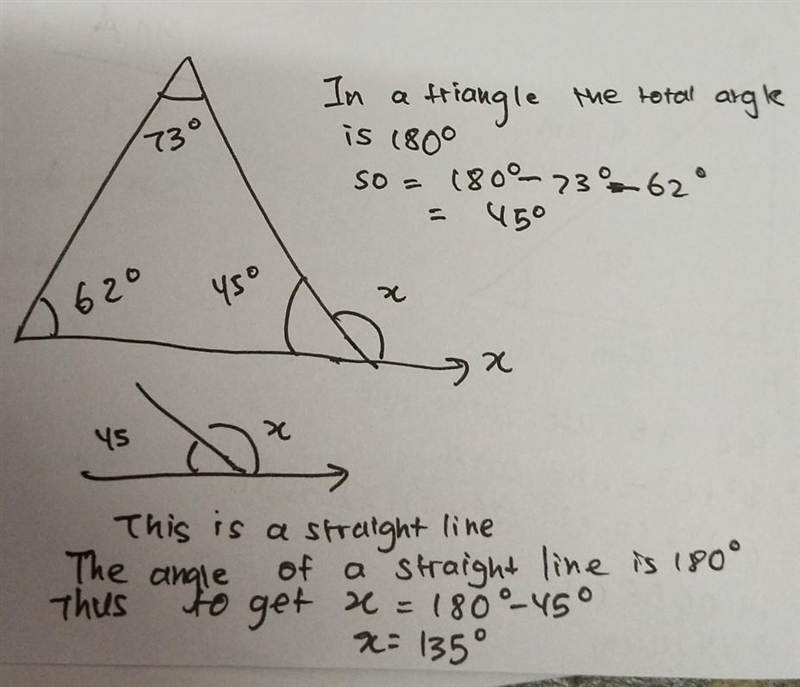 In a triangle the total angle
is 180°
so = 180° - 73° - 62°
= 45°
73°
62°
45°
x
x
45
x
This is a straight line
The angle of a straight line is 180°
Thus to get x = 180° - 45°
x = 135°